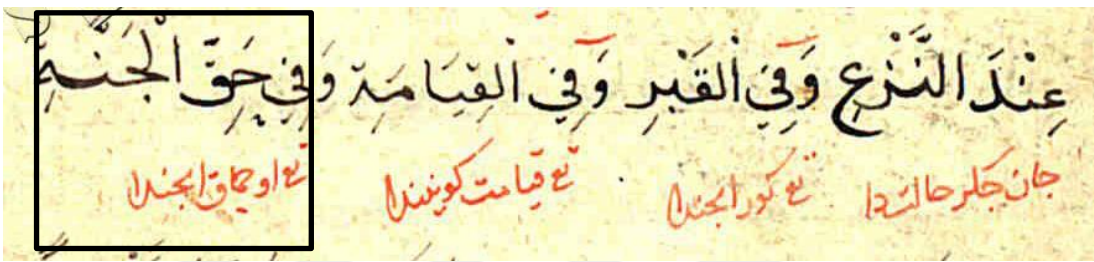 عِنْدَ النَّزْعِ وَفِي الْقَبْرِ وَفِي الْقِيَامَةِ وَفِي حَقِّ الْجَنَّةِ
جان چكر حالتدا تع كور ایچندا تع قیامت كونیندا تع اوجماق ایچندا